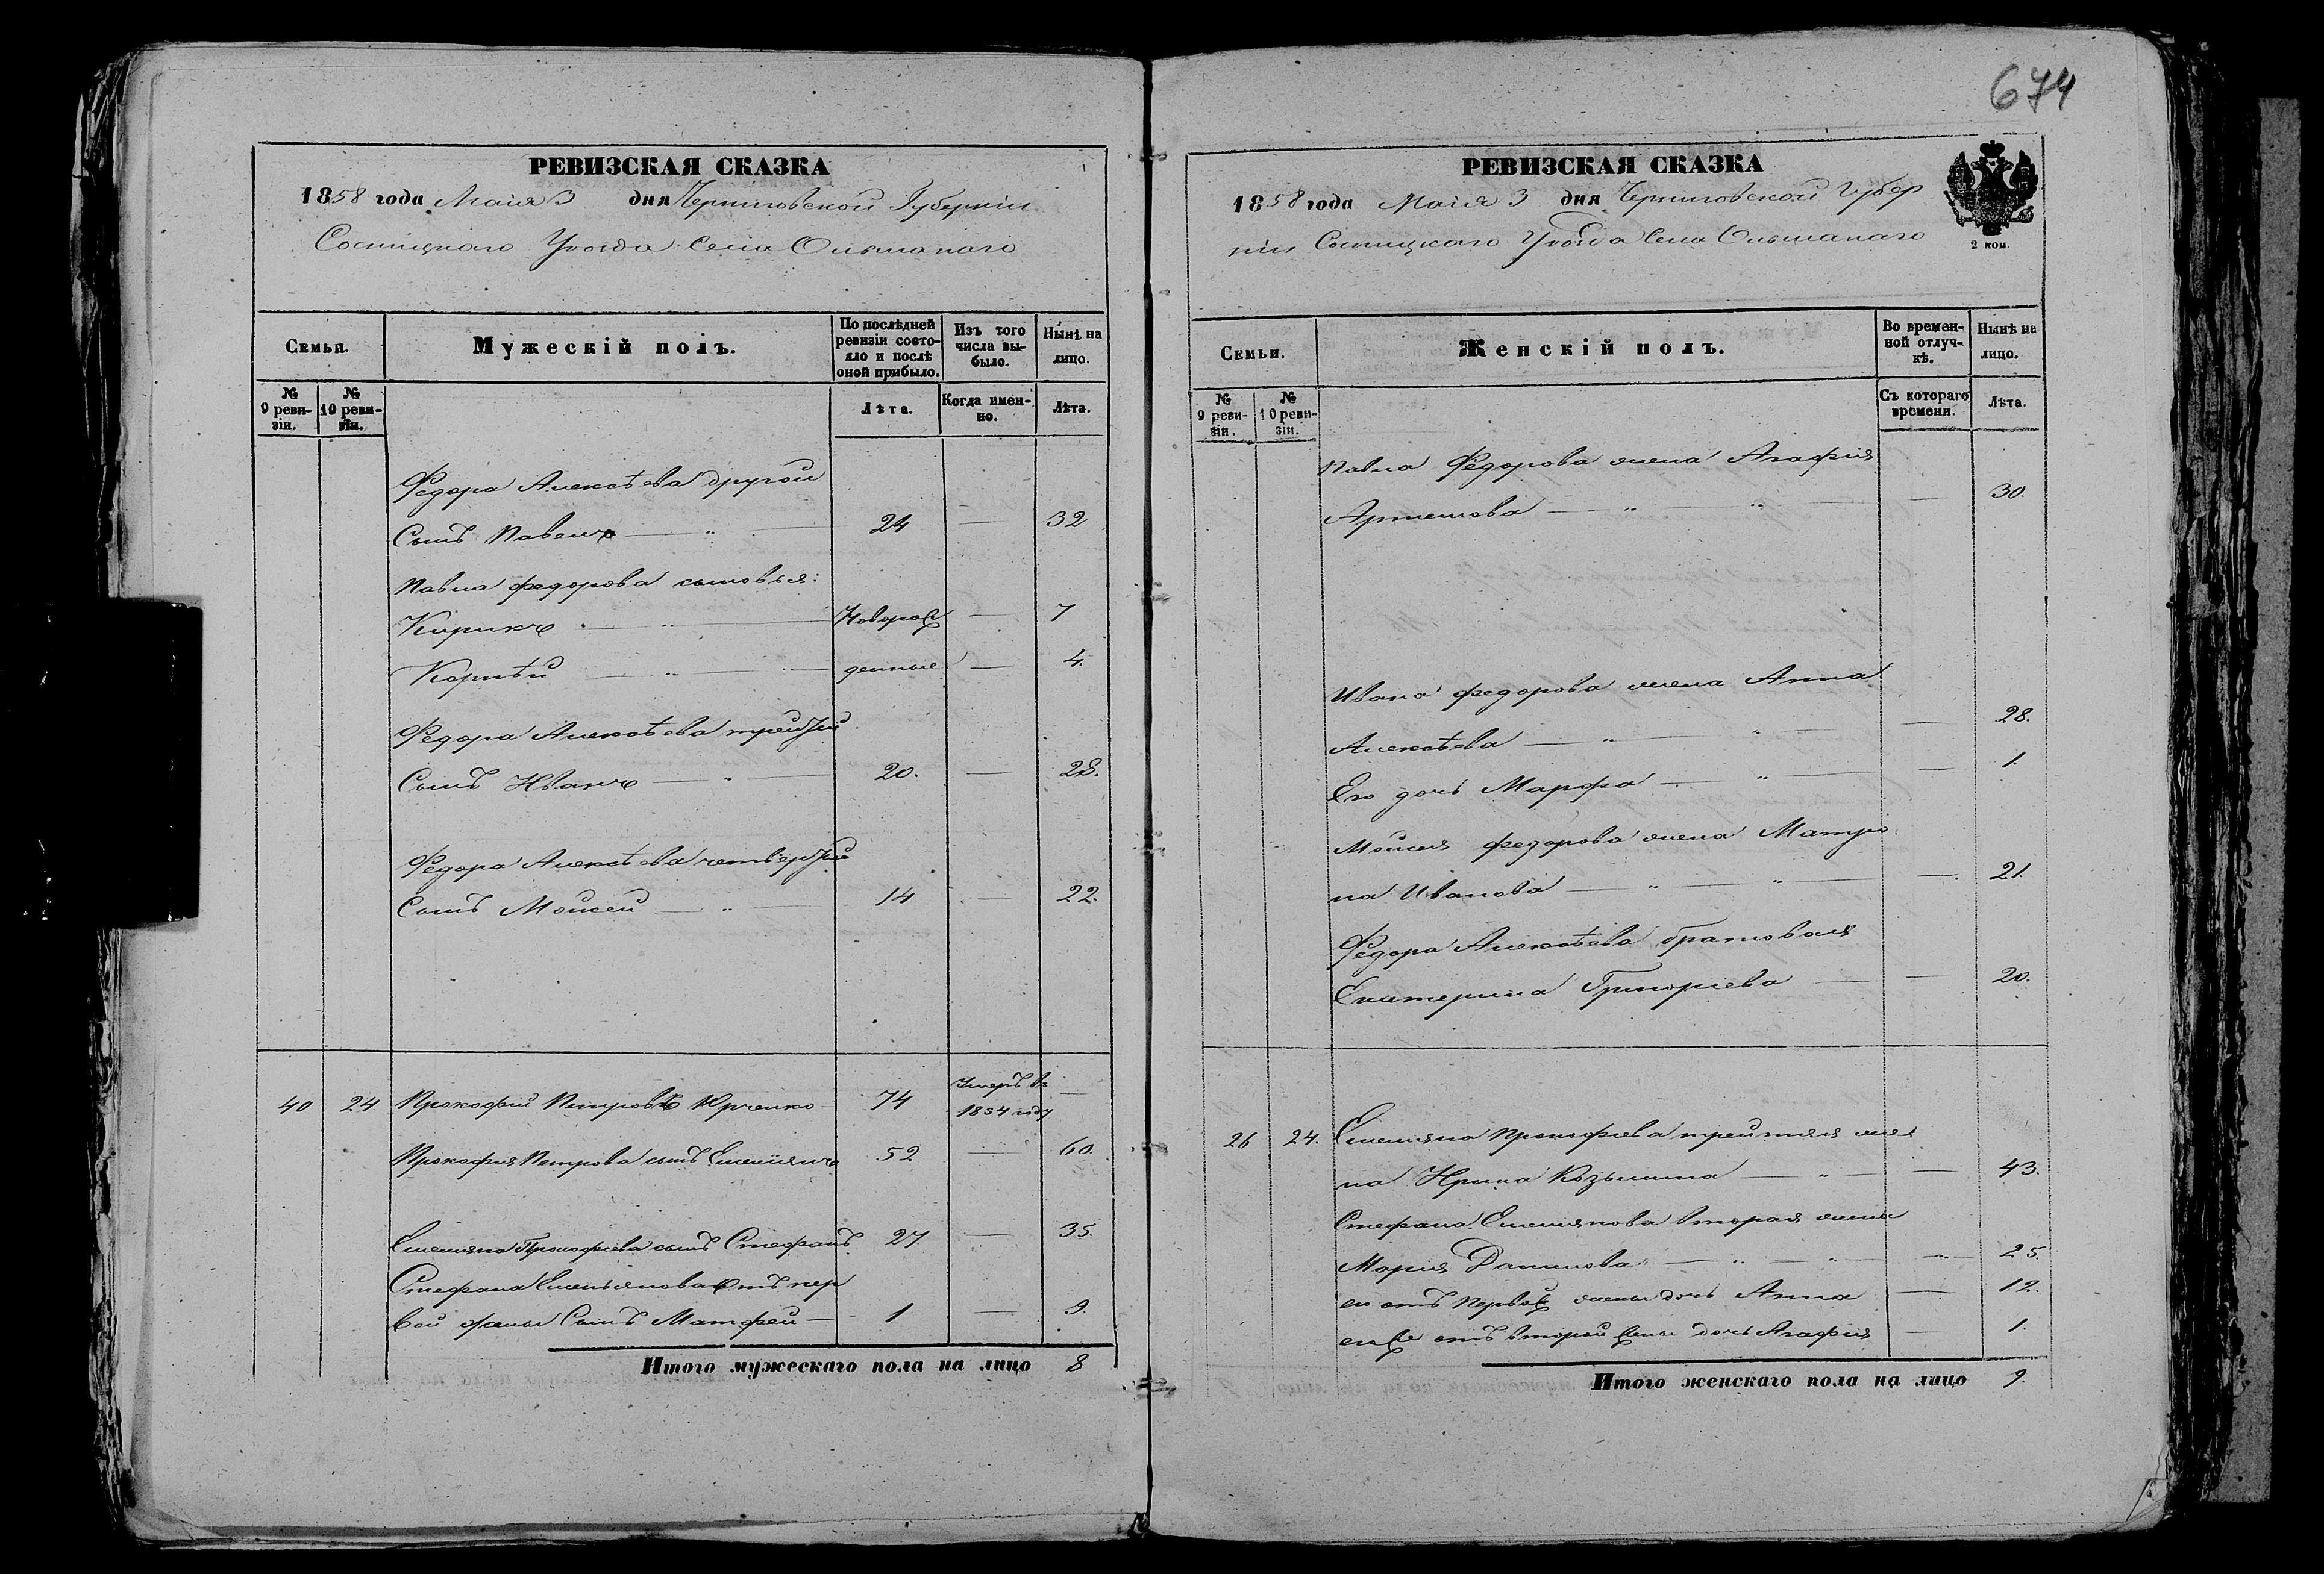 674
РЕВИЗСКАЯ СКАЗКА
1858 года Маія 3 дня Черниговской Губерніи
Сосницкаго Уѣзда Села Ольшанаго
Семьи.
Мужескій полъ.
По послѣдней ревизіи состояло и послѣ оной прибыло.
Изъ того числа выбыло.
Нынѣ на лицо.
№ 9 ревизіи.
№ 10 ревизіи.
Лѣта.
Когда именно.
Лѣта.
Федора Алексѣева другой
Сынъ Павелъ — " — 24 — 32
Павла Федорова сыновья:
Кирикъ — " — Новорож — 7
Корнѣй — " — денные — 4.
Федора Алексѣева третій
Сынъ Иванъ — " — 20. — 28.
Федора Алексѣева четвертый
Сынъ Моисей — " — 14 — 22.
40 24 Прокофій Петровъ Юрченко — 74 Умеръ въ 1854 году —
Прокофія Петрова сынъ Емельянъ 52 — 60.
Емельяна Прокофіева сынъ Стефанъ 27 — 35.
Стефана Емельянова отъ пер
вой жены Сынъ Матфей — 1 — 9.
Итого мужескаго пола на лицо 8
РЕВИЗСКАЯ СКАЗКА
1858 года Маія 3 дня Черниговской Губер
ніи Сосницкаго Уѣзда Села Ольшанаго
2 коп.
Семьи.
Женскій полъ.
Во временной отлучкѣ.
Нынѣ на лицо.
№ 9 ревизіи.
№ 10 ревизіи.
Съ котораго времени.
Лѣта.
Павла Федорова жена Агафія
Артемова — " — " — 30.
Ивана Федорова жена Анна
Алексѣева — " — " — 28.
Его дочь Марфа — " — 1.
Моисея Федорова жена Матро
на Иванова — " — " — 21.
Федора Алексѣева братовая
Екатерина Григоріева — — 20.
26 24. Емельяна Прокофіева третяя же
на Ирина Козьмина — " — 43.
Стефана Емельянова вторая жена
Марія Данилова — " — " — 25.
его отъ первой жены дочь Анна — 12.
отъ второй жены дочь Агафія — 1.
Итого женскаго пола на лицо 9.